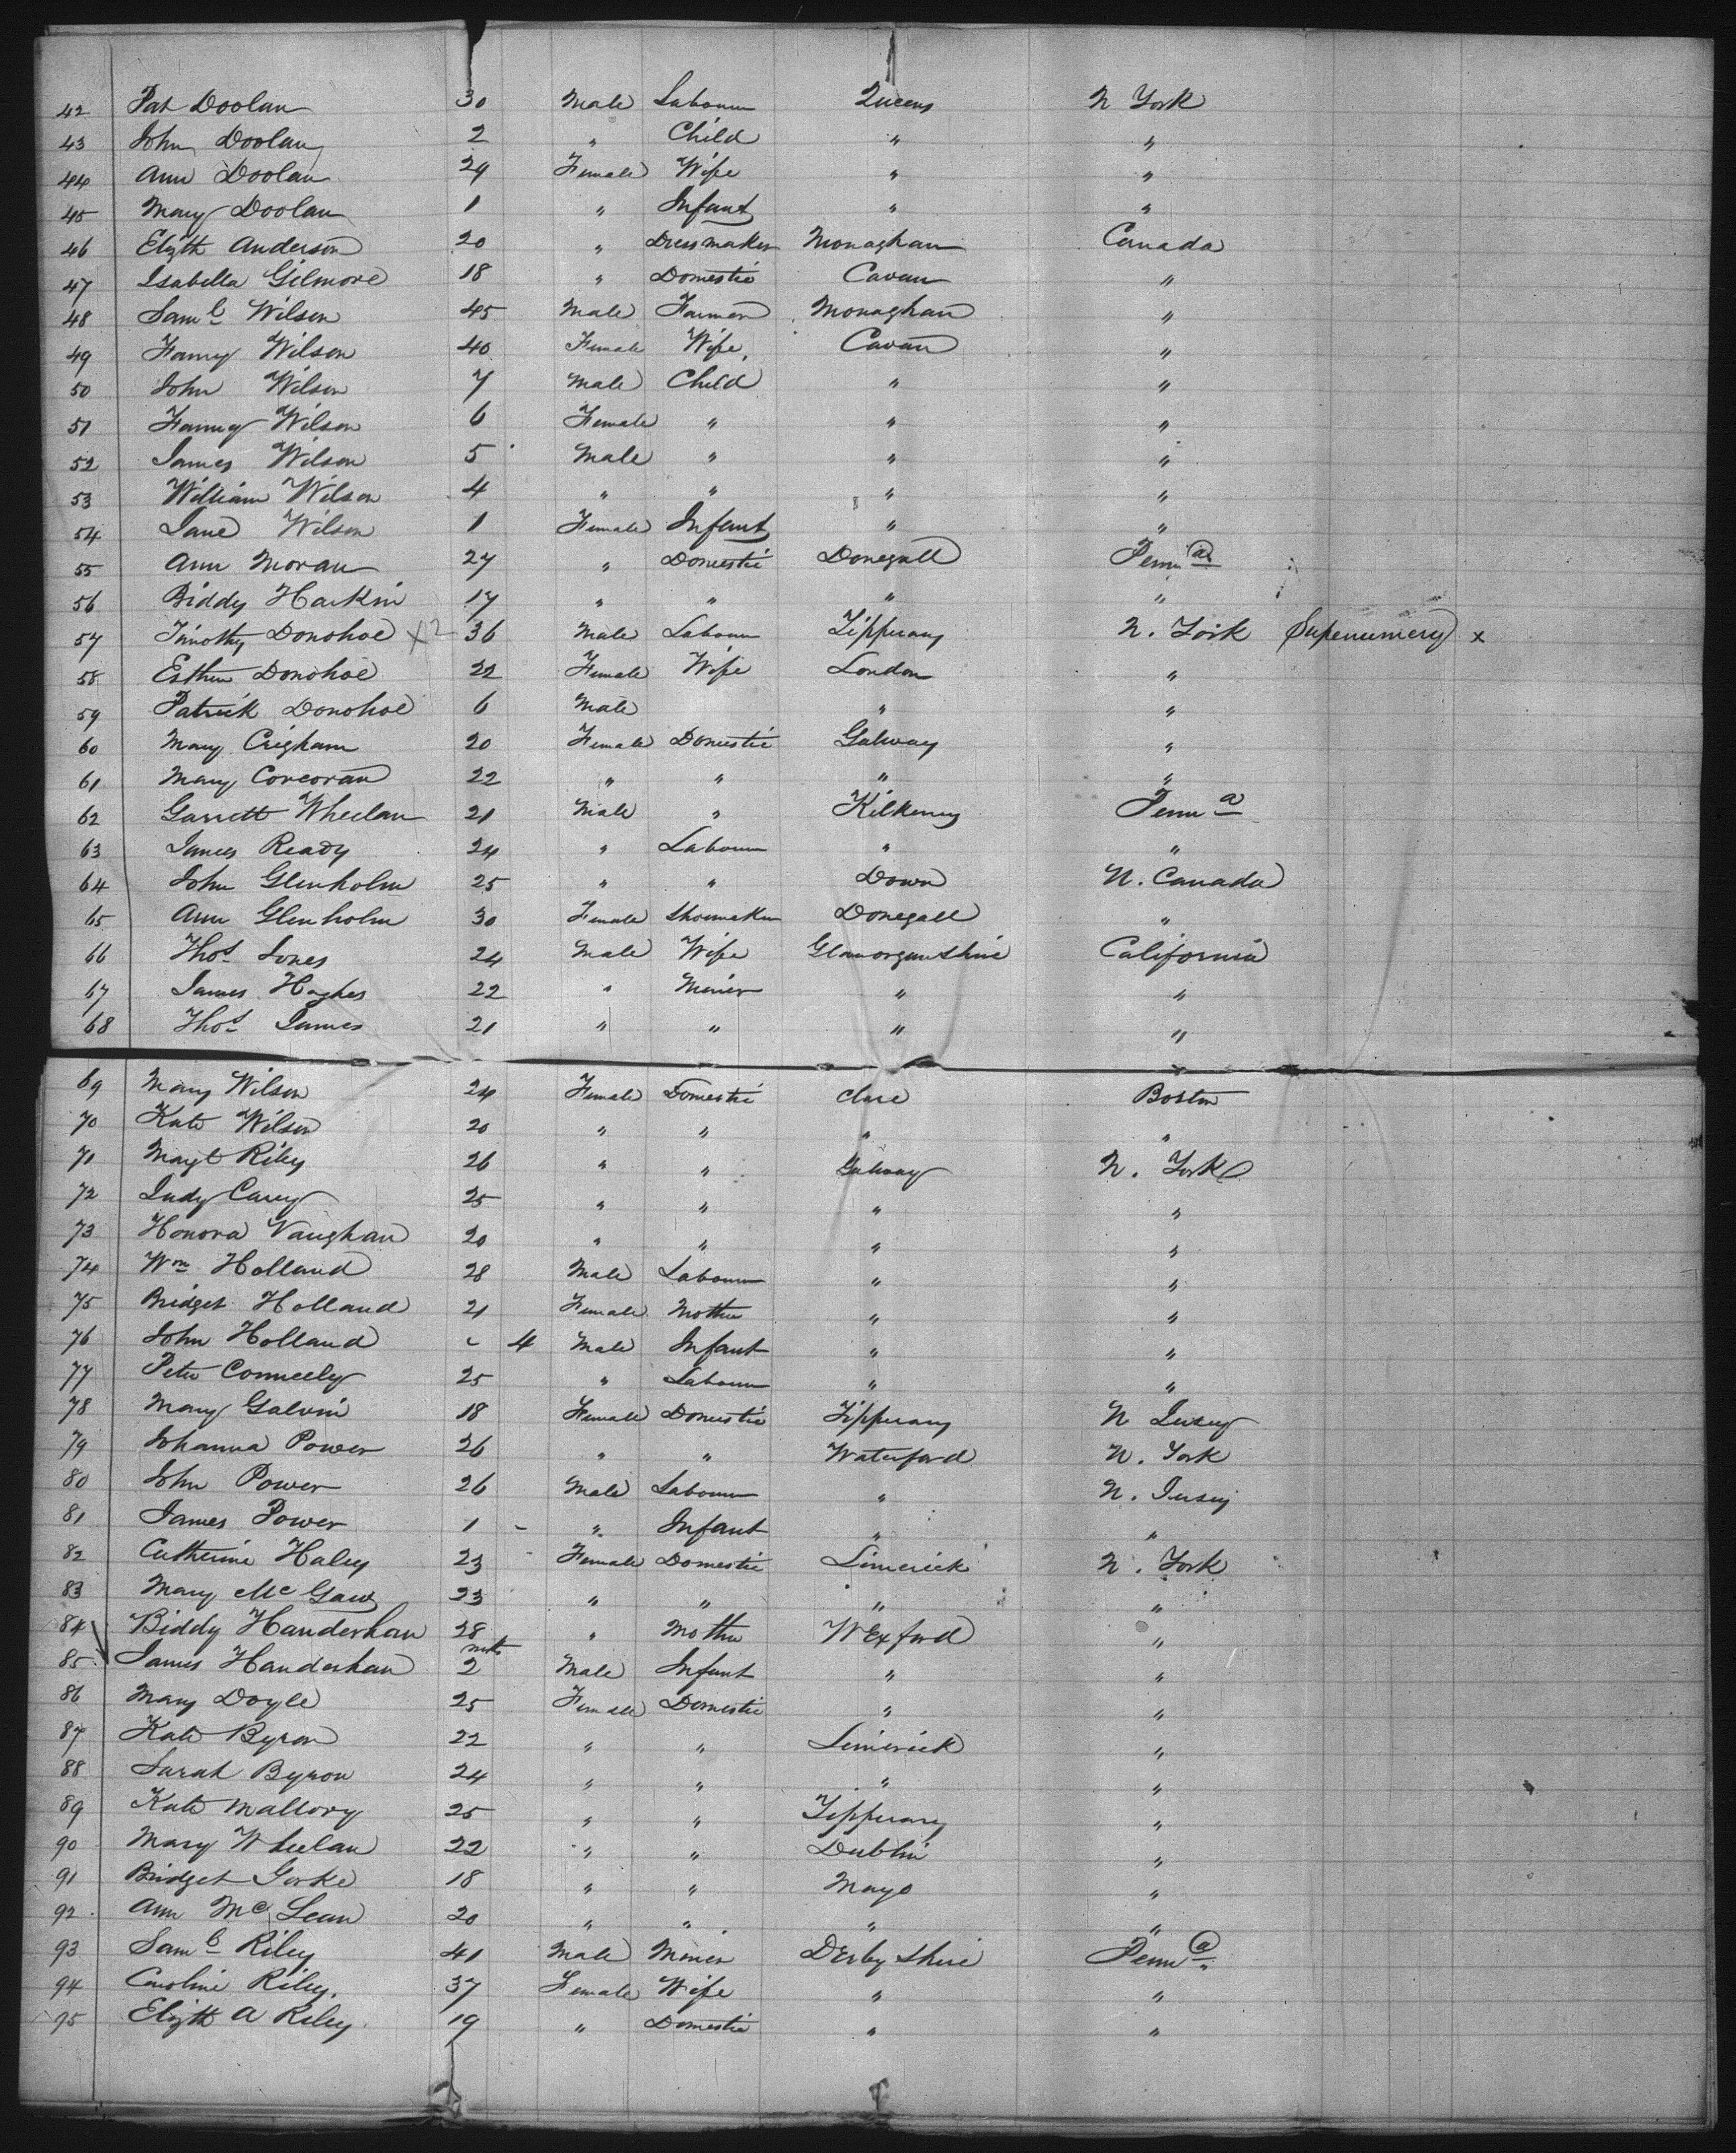 42 Pat Doolan 30 Male Labourer Queens N York
43 John Doolan 2 " Child " "
44 Ann Doolan 29 Female Wife " "
45 Mary Doolan 1 " Infant " "
46 Elizth Anderson 20 " Dressmaker Monaghan Canada
47 Isabella Gilmore 18 " Domestic Cavan "
48 Saml Wilson 45 Male Farmer Monaghan "
49 Fanny Wilson 40 Female Wife Cavan "
50 John Wilson 7 Male Child " "
51 Fanny Wilson 6 Female " " "
52 James Wilson 5 Male " " "
53 William Wilson 4 " " " "
54 Jane Wilson 1 Female Infant " "
55 Ann Moran 27 " Domestic Donegall Penna
56 Biddy Harkin 17 " " " "
57 Timothy Donohoe x2 36 Male Labourer Tipperary N. York Supernumery x
58 Esther Donohoe 22 Female Wife London "
59 Patrick Donohoe 6 Male " "
60 Mary Crigham 20 Female Domestic Galway "
61 Mary Corcoran 22 " " " "
62 Garrett Wheelan 21 Male " Kilkenny Penna
63 James Ready 24 " Labourer " "
64 John Glenholm 25 " " Down N. Canada
65 Ann Glenholm 30 Female Shoemaker Donegall "
66 Thos Jones 24 Male Wife Glamorganshire California
67 James Hughes 22 " Miner " "
68 Thos James 21 " " " "
69 Mary Wilson 24 Female Domestic Clare Boston
70 Kate Wilson 20 " " " "
71 Magt Riley 26 " " Galway N. York
72 Judy Carey 25 " " " "
73 Honora Vaughan 20 " " " "
74 Wm Holland 28 Male Labourer " "
75 Bridget Holland 21 Female Mother " "
76 John Holland - 4 Male Infant " "
77 Peter Conneely 25 " Labourer " "
78 Mary Galvin 18 Female Domestic Tipperary N Jersey
79 Johanna Power 26 " " Waterford N. York
80 John Power 26 Male Labourer " N. Jersey
81 James Power 1 - " Infant " "
82 Catherine Haley 23 Female Domestic Limerick N. York
83 Mary McGaw 23 " " " "
84 Biddy Handerhan 28 " Mother WExford "
85 James Handerhan 2 mts Male Infant " "
86 Mary Doyle 25 Female Domestic " "
87 Kate Byron 22 " " Limerick "
88 Sarah Byron 24 " " " "
89 Kate Mallory 25 " " Tipperary "
90 Mary Wheelan 22 " " Dublin "
91 Bridget Gorke 18 " " Mayo "
92 Ann McLean 20 " " " "
93 Saml Riley 41 Male Miner Derby Shire Penna
94 Caroline Riley. 37 Female Wife " "
95 Elizth A Riley. 19 " Domestic " "